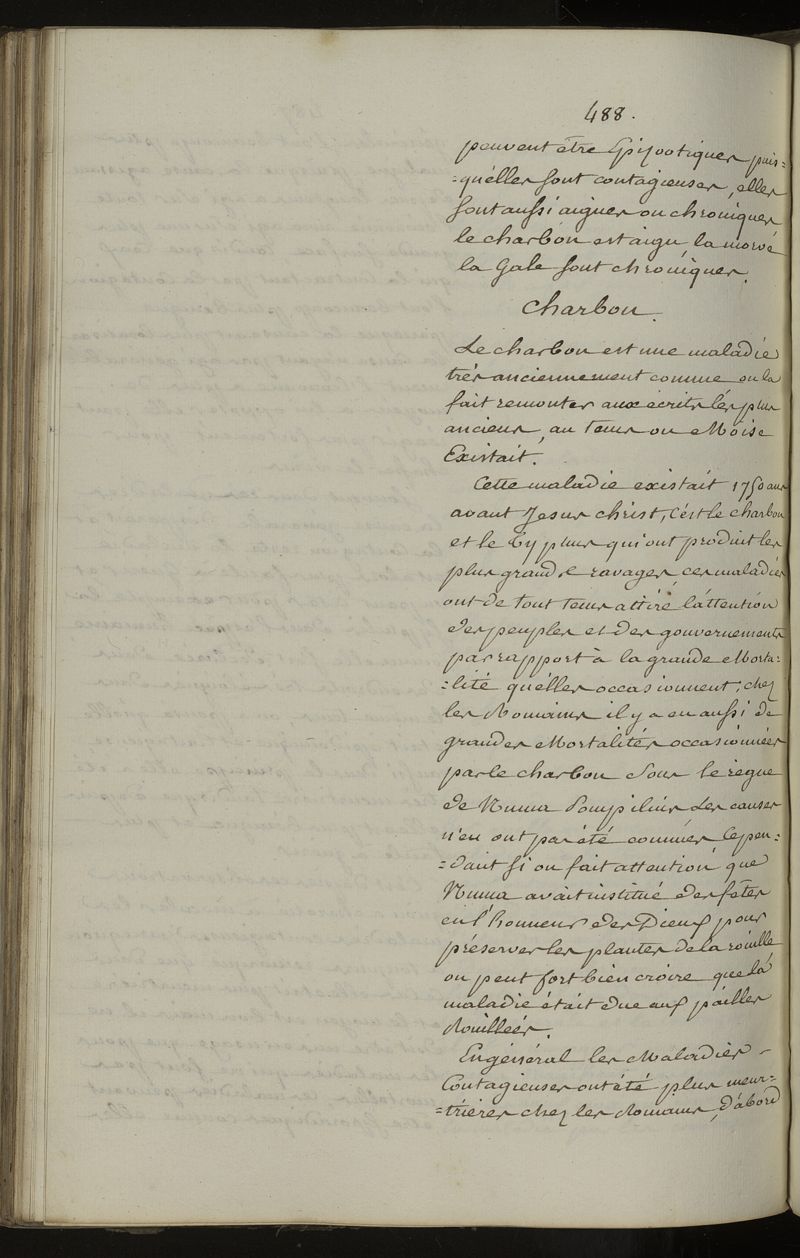 488.
peuvent être Épizootiques puis=
=qu'elles sont contagieuses, elles
sont aussi aigues ou chroniques
le charbon est aigu, la morve
la Gale sont chroniques.
Charbon.
Le charbon est une maladie
très anciennement connue on la
fait remonter aux écrits lés plus
anciens, au tems ou Moïse
Existait.
Cette maladie existait 1750 ans
avant Jesus christ, C'est le charbon
et le typhus qui ont produit les
plus grands ravages, ces maladies
ont de tout tems attiré l'attention
des peuples et des gouvernements
par rapport à la grande Morta=
=lité qu'elles occasionnent; chez
les Romains il y a eu aussi de
grandes Mortalités occasionnées
par le charbon Sous le règne
de Numa Pompilius Les causes
n'en ont pas été connues Cepen=
=dant si on fait attention que
Numa avait institué des fêtes
en l'honneur des Dieux pour
préserver les plantes de la rouille
on peut fort bien croire que la
maladie était due aux pailles
Rouillées.
En général les Maladies
Contagieuses ont été plus meur=
=trières chez les Romains, d'abord